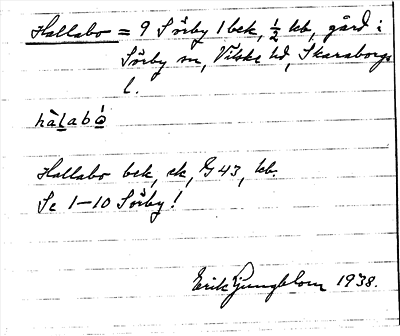 Hallabo = 9 Sörby 1 bek, ½ kb, gård i
Sörby sn, Vilske hd, Skaraborgs
l.
hàlabó
Hallabo bek, ek, G 43, kb.
Se 1–10 Sörby!
Erik Ljungblom 1938.